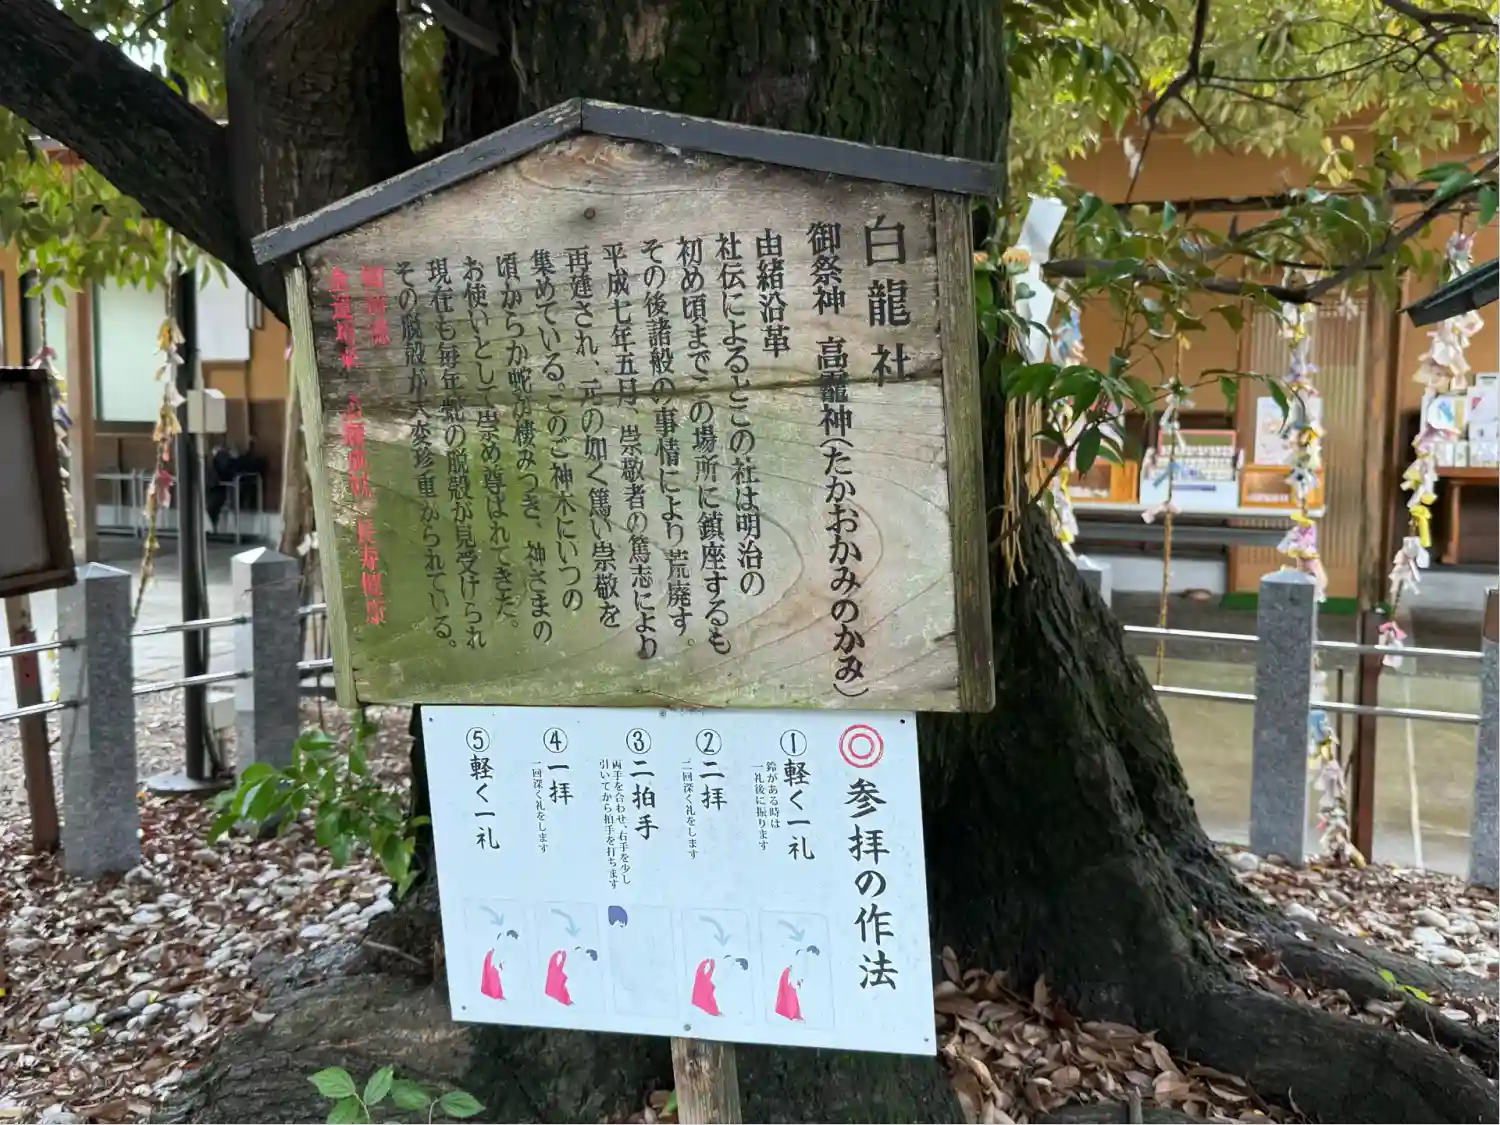 白龍社
御祭神 高龗神(たかおかみのかみ)
由緒沿革
社伝によるとこの社は明治の
初め頃までこの場所に鎮座するも
その後諸般の事情により荒廃す。
平成七年五月、崇敬者の篤志により
再建され、元の如く篤い崇敬を
集めている。このご神木にいつの
頃からか蛇が棲みつき、神さまの
お使いとして崇め尊ばれてきた。
現在も毎年蛇の脱殻が見受けられ
その脱殻が大変珍重がられている。
長寿健康
◎参拝の作法
①軽く一礼
鈴がある時は
一礼後に振ります
②二拝
二回深く礼をします
③二拍手
両手を合わせ、右手を少し
引いてから拍手を打ちます
④一拝
一回深く礼をします
⑤軽く一礼